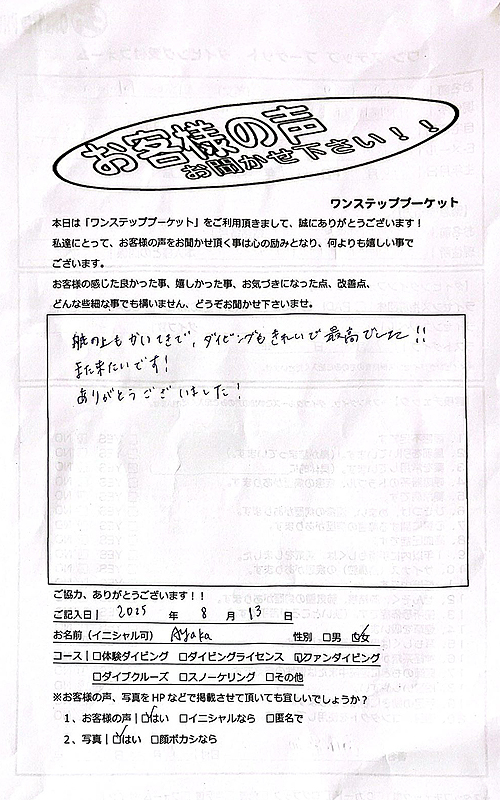 お客様の声
お聞かせ下さい！！
ワンステッププーケット
本日は「ワンステッププーケット」をご利用頂きまして、誠にありがとうございます！
私達にとって、お客様の声をお聞かせ頂く事は心の励みとなり、何よりも嬉しい事で
ございます。
お客様の感じた良かった事、嬉しかった事、お気づきになった点、改善点、
どんな些細な事でも構いません、どうぞお聞かせ下さいませ。
船の上もかいてきで、ダイビングもきれいで最高でした!!
また来たいです！
ありがとうございました！
ご協力、ありがとうございます！！
ご記入日｜ 2025 年 8 月 13 日
お名前（イニシャル可） Ayaka 性別 □男 ☑女
コース｜□体験ダイビング □ダイビングライセンス ☑ファンダイビング
□ダイブクルーズ □スノーケリング □その他
※お客様の声、写真をHPなどで掲載させて頂いても宜しいでしょうか？
1、お客様の声｜☑はい □イニシャルなら □匿名で
2、写真｜☑はい □顔ボカシなら